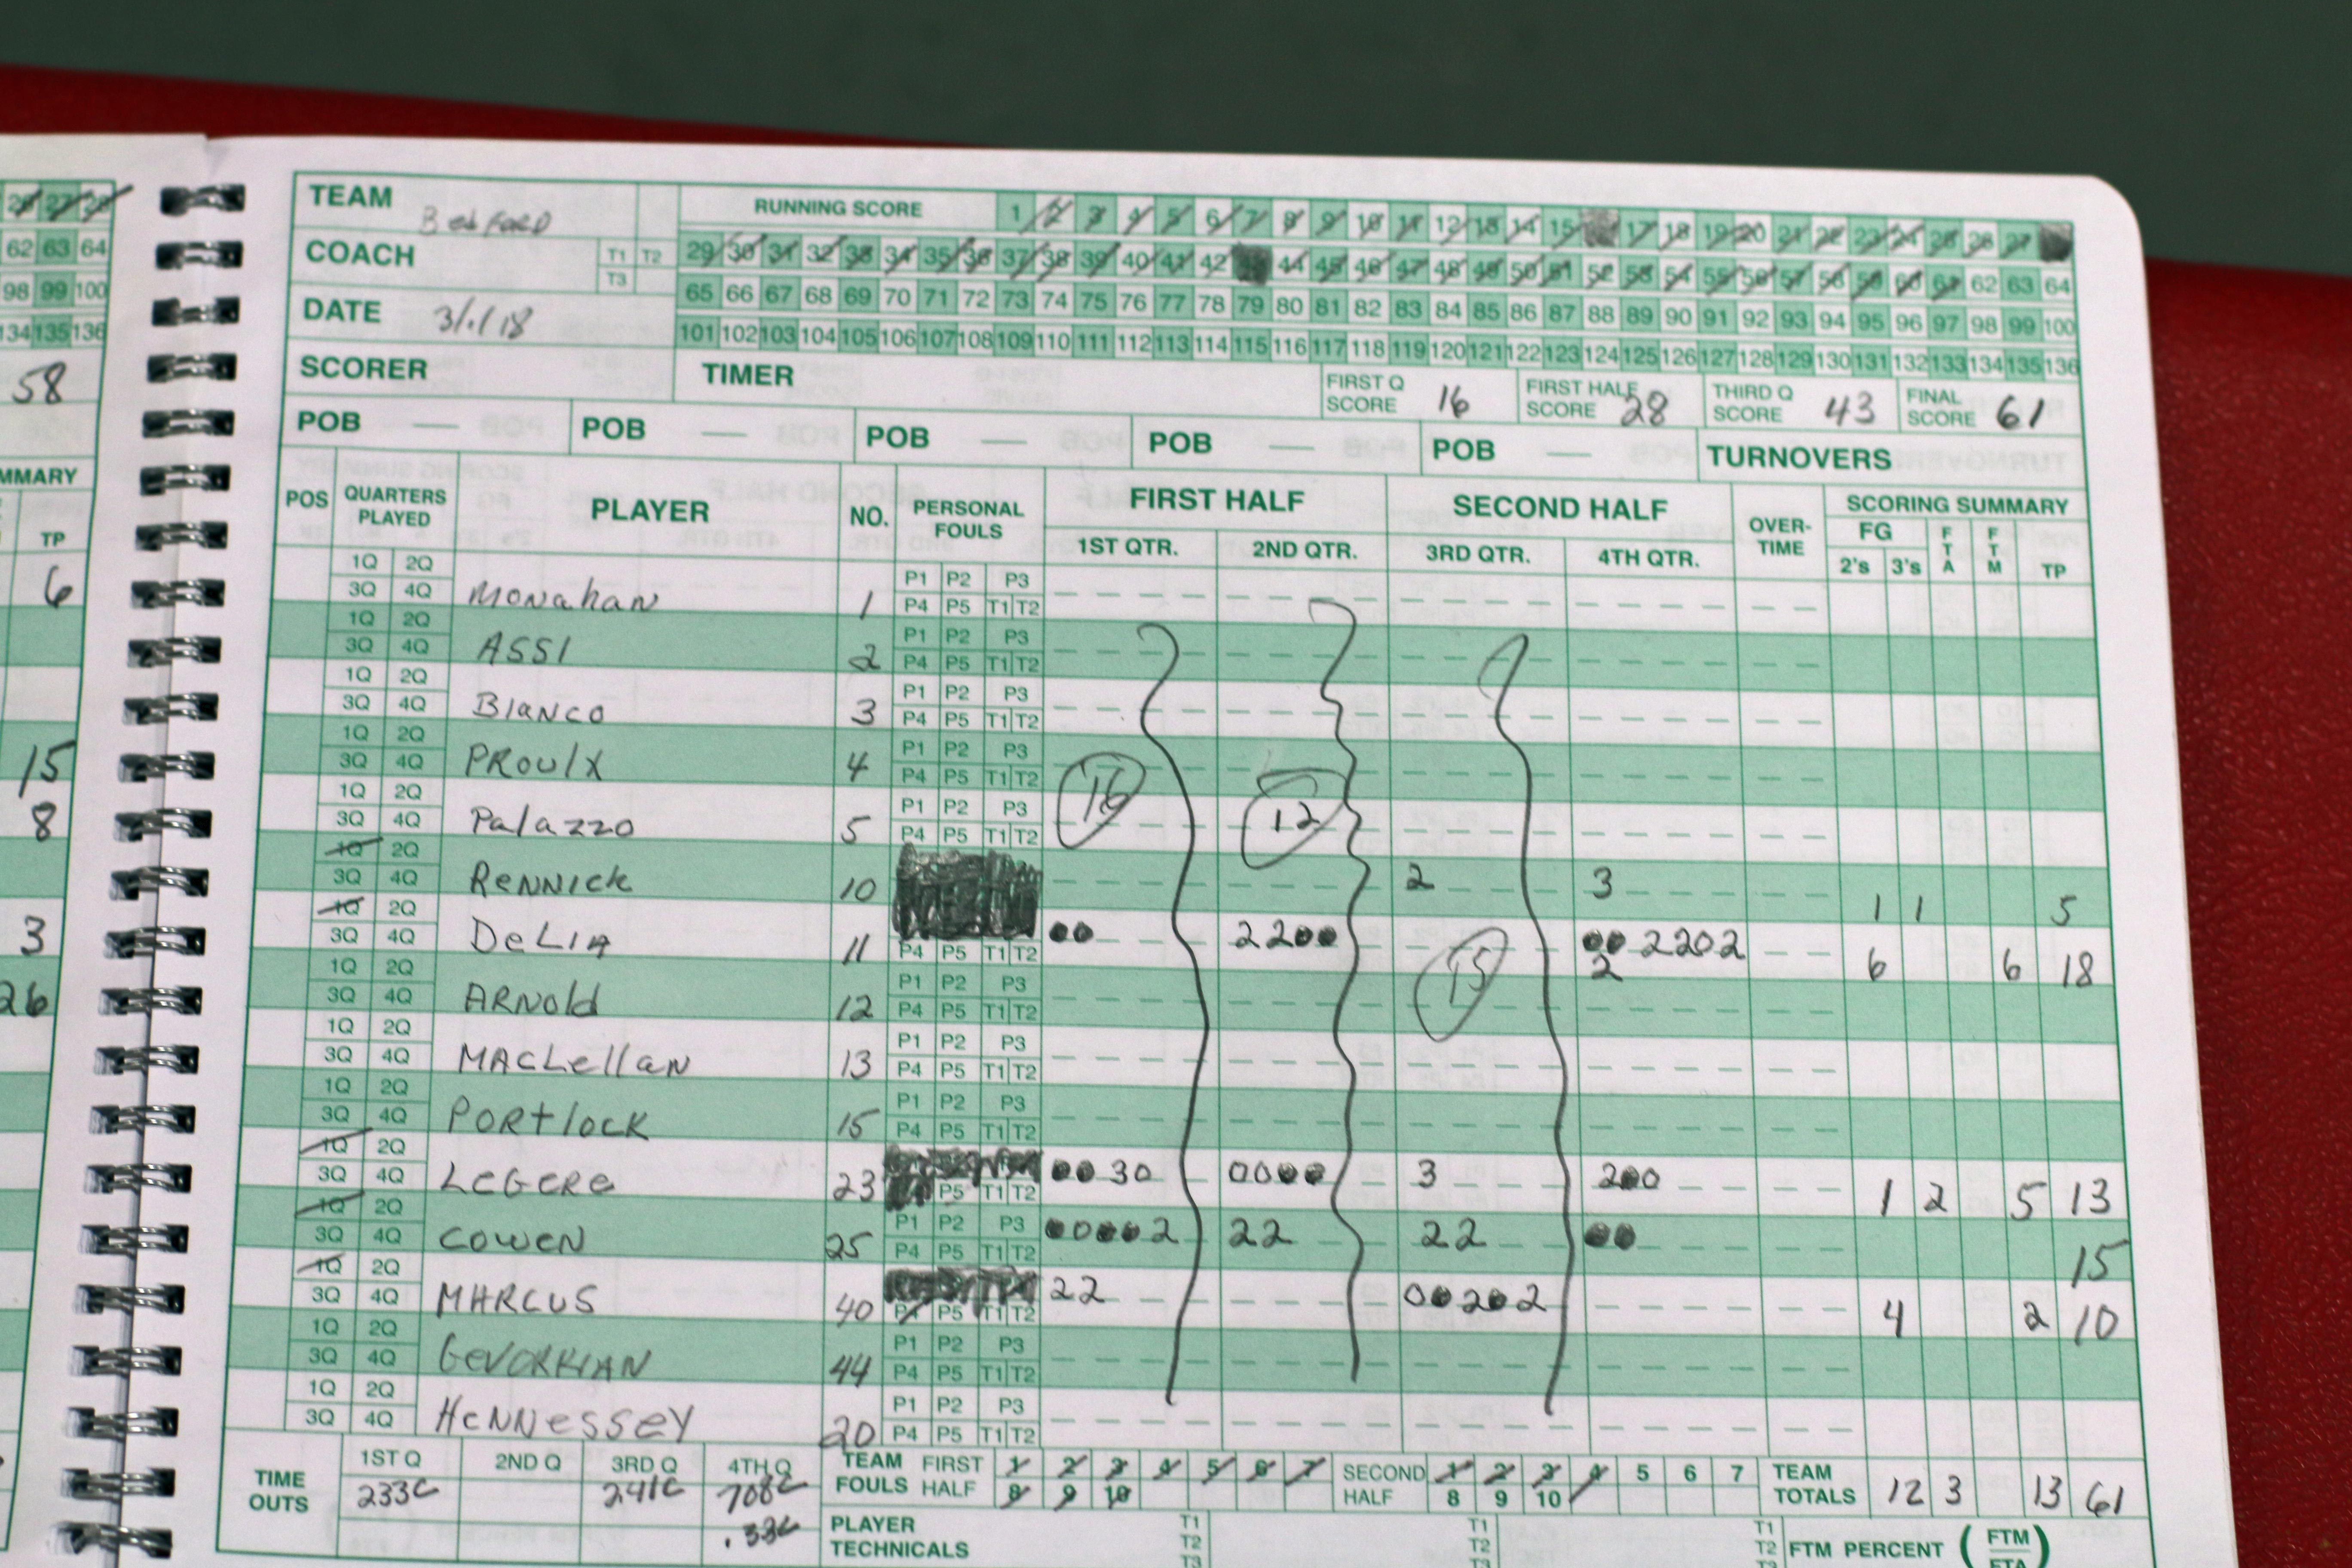 26 27 28
62 63 64
98 99 100
134 135 136
58
MMARY
TP
6
15
8
3
26
TEAM Bedford RUNNING SCORE 1 2 3 4 5 6 7 8 9 10 11 12 13 14 15 17 18 19 20 21 22 23 24 25 26 27
COACH T1 T2 T3 29 30 31 32 33 34 35 36 37 38 39 40 41 42 44 45 46 47 48 49 50 51 52 53 54 55 56 57 58 59 60 61 62 63 64
65 66 67 68 69 70 71 72 73 74 75 76 77 78 79 80 81 82 83 84 85 86 87 88 89 90 91 92 93 94 95 96 97 98 99 100
DATE 3/1/18 101 102 103 104 105 106 107 108 109 110 111 112 113 114 115 116 117 118 119 120 121 122 123 124 125 126 127 128 129 130 131 132 133 134 135 136
SCORER TIMER FIRST Q SCORE 16 FIRST HALF SCORE 28 THIRD Q SCORE 43 FINAL SCORE 61
POB — POB — POB — POB — POB — TURNOVERS
POS QUARTERS PLAYED PLAYER NO. PERSONAL FOULS FIRST HALF SECOND HALF OVER-TIME SCORING SUMMARY
1ST QTR. 2ND QTR. 3RD QTR. 4TH QTR. FG 2's 3's FTA FTM TP
1Q 2Q P1 P2 P3
3Q 4Q Monahan 1 P4 P5 T1 T2
1Q 2Q P1 P2 P3
3Q 4Q ASSI 2 P4 P5 T1 T2
1Q 2Q P1 P2 P3
3Q 4Q Blanco 3 P4 P5 T1 T2
1Q 2Q P1 P2 P3
3Q 4Q PRoulx 4 P4 P5 T1 T2
1Q 2Q P1 P2 P3 16 12
3Q 4Q Palazzo 5 P4 P5 T1 T2
1Q 2Q
3Q 4Q RENNICK 10 2 3 1 1 5
1Q 2Q
3Q 4Q DeLIA 11 P4 P5 T1 T2 00 2200 00 2202 2 6 6 18
1Q 2Q P1 P2 P3 15
3Q 4Q ARNold 12 P4 P5 T1 T2
1Q 2Q P1 P2 P3
3Q 4Q MACLellan 13 P4 P5 T1 T2
1Q 2Q P1 P2 P3
3Q 4Q PORtlock 15 P4 P5 T1 T2
1Q 2Q
3Q 4Q LEGERE 23 P5 T1 T2 0030 0000 3 200 1 2 5 13
1Q 2Q P1 P2 P3
3Q 4Q COWEN 25 P4 P5 T1 T2 000002 22 22 00 15
1Q 2Q
3Q 4Q MARCUS 40 P4 P5 T1 T2 22 00202 4 2 10
1Q 2Q P1 P2 P3
3Q 4Q GEVORKIAN 44 P4 P5 T1 T2
1Q 2Q P1 P2 P3
3Q 4Q HENNESSEY 20 P4 P5 T1 T2
TIME OUTS 1ST Q 233C 2ND Q 3RD Q 241C 4TH Q 708C .33C
TEAM FOULS FIRST HALF 1 2 3 4 5 6 7 8 9 10 SECOND HALF 1 2 3 4 5 6 7 8 9 10 TEAM TOTALS 12 3 13 61
PLAYER TECHNICALS T1 T2 T3 T1 T2 T3 T1 T2 T3 FTM PERCENT (FTM/FTA)